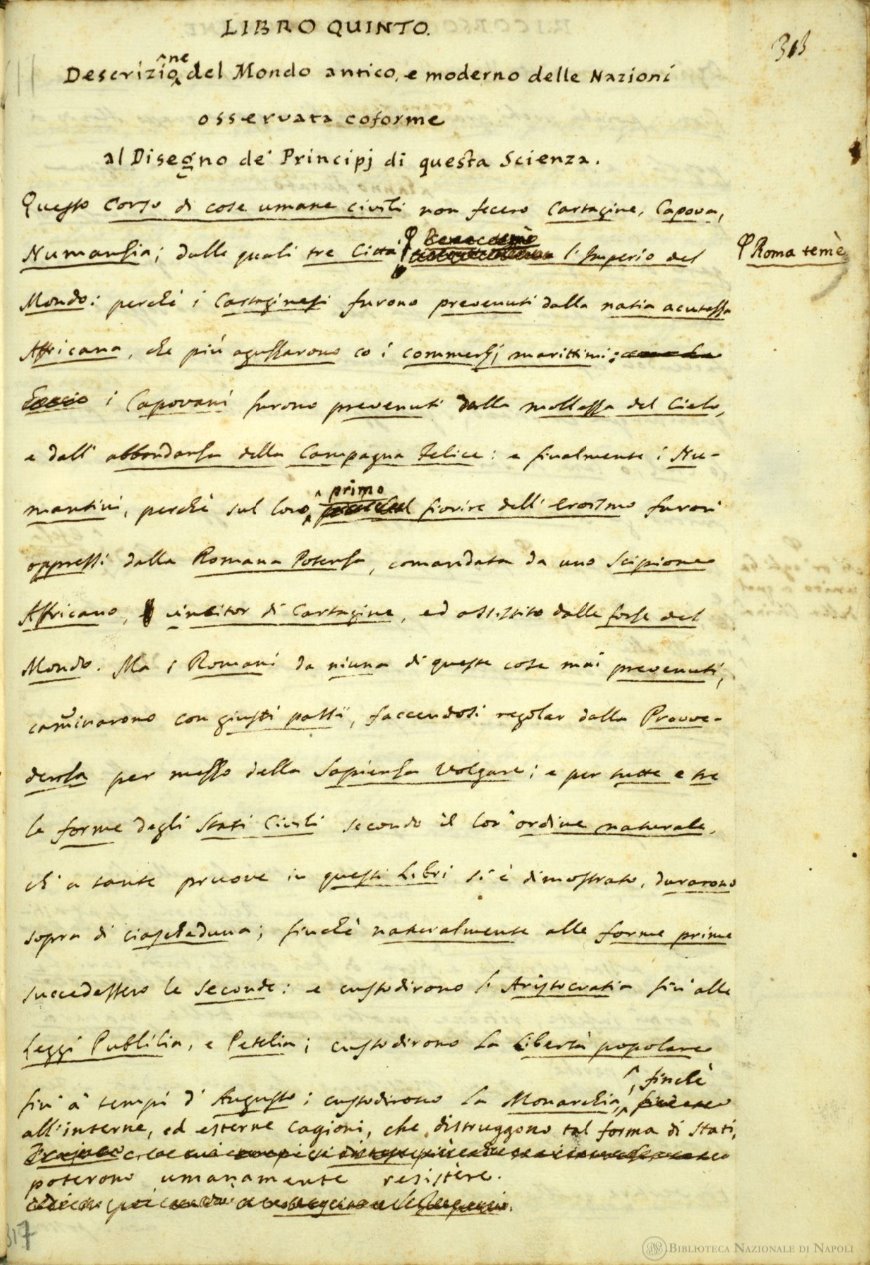 LIBRO QUINTO.
313
Descrizione del Mondo antico, e moderno delle Nazioni
osservata coforme
al Disegno de' Principj di questa Scienza.
Questo Corso di cose umane civili non fecero Cartagine, Capova,
Numanzia; dalle quali tre Città l'Imperio del
Roma temè
Mondo: perchè i Cartaginesi furono prevenuti dalla natia acutezza
Affricana, che più aguzzarono co i commerzj marittimi:
i Capovani furono prevenuti dalla mollezza del Cielo,
e dall' abbondanza della Campagna Felice: e finalmente i Nu-
mantini, perchè sul loro primo fiorire dell' eroismo furon
oppressi dalla Romana Potenza, comandata da uno Scipione
Affricano, vincitor di Cartagine, ed assistito dalle forze del
Mondo. Ma i Romani da niuna di queste cose mai prevenuti,
camminarono con giusti passi, faccendosi regolar dalla Provve-
denza per mezzo della Sapienza Volgare; e per tutte e tre
le forme degli Stati Civili secondo il lor' ordine naturale,
ch' a tante pruove in questi Libri si è dimostrato, durarono
sopra di ciascheduna; finchè naturalmente alle forme prime
succedessero le seconde: e custodirono l' Aristocratia fin' alle
Leggi Publilia, e Petelia; custodirono la Libertà popolare
fin' a' tempi d' Augusto; custodirono la Monarchia, finchè
all'interne, ed esterne cagioni, che distruggono tal forma di Stati,
poterono umanamente resistere.
317
BIBLIOTECA NAZIONALE DI NAPOLI